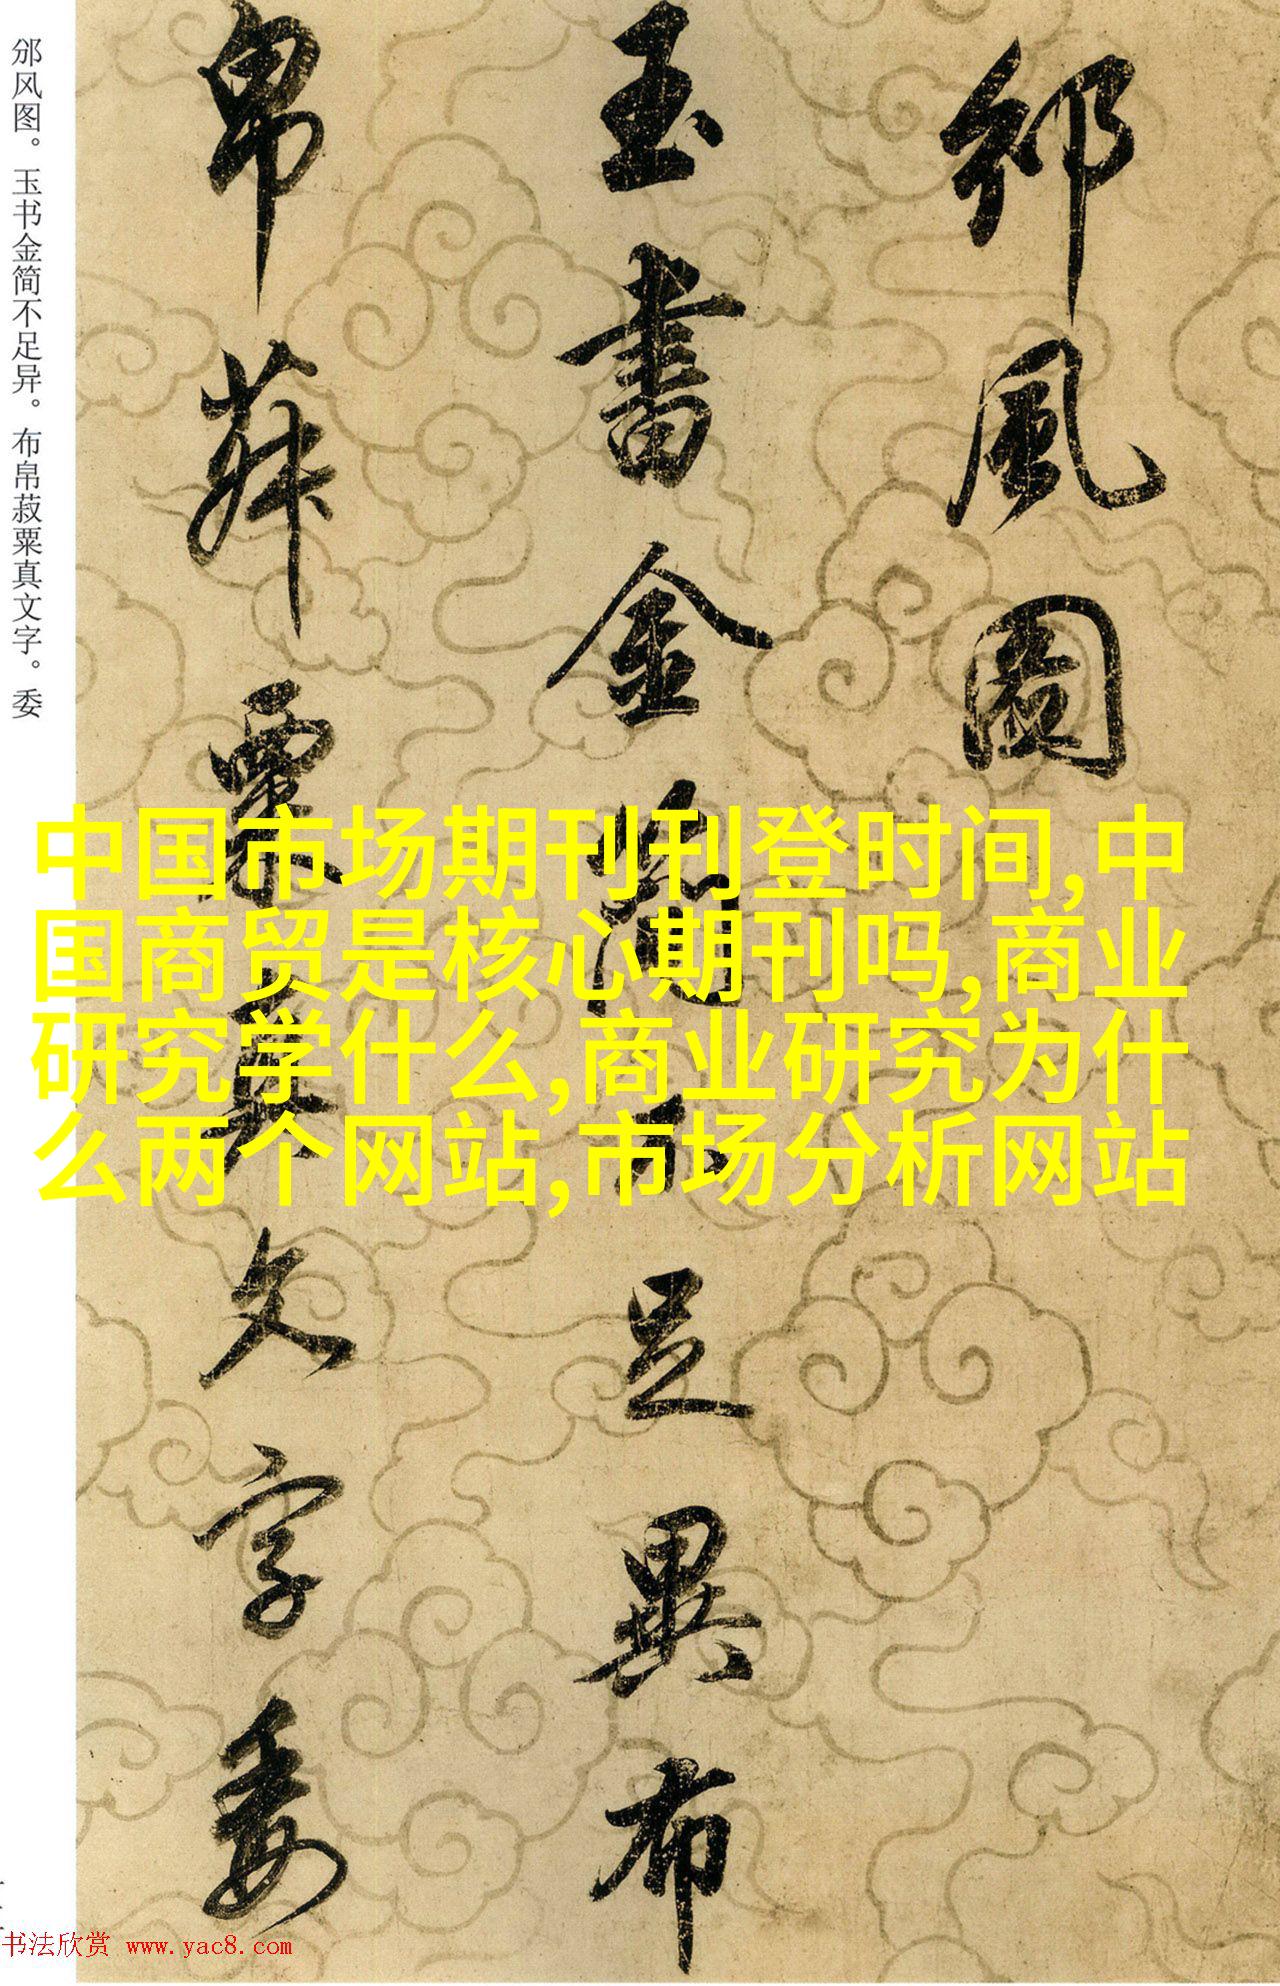 邠風圖
玉書金簡不足異布
帛菽粟真文字委
邠风图。玉书金简不足异。布帛菽粟真文字。委
中国市场期刊刊登时间,中
国商贸是核心期刊吗,商业
研究学什么,商业研究为什
么两个网站,市场分析网站
书法欣赏 www.yac8.com